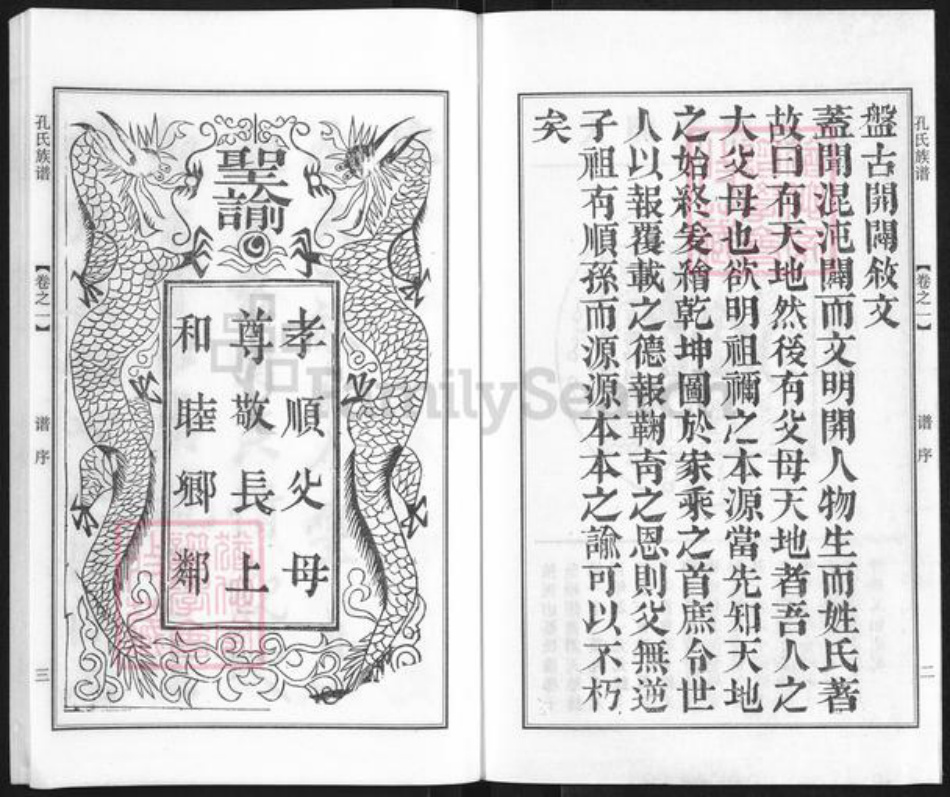 孔氏族谱
【卷之一】
谱序
二
盤古開闢敘文
蓋聞混沌闢而文明開人物生而姓氏著
故曰有天地然後有父母天地者吾人之
大父母也欲明祖禰之本源當先知天地
之始終爰繪乾坤圖於家乘之首庶令世
人以報覆載之德報鞠育之恩則父無逆
子祖有順孫而源源本本之諭可以不朽
矣
聖諭
孝順父母
尊敬長上
和睦鄉鄰
孔氏族谱
【卷之一】
谱序
三
FamilySearch